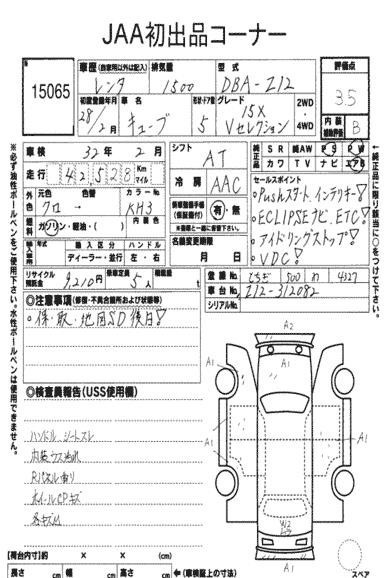 JAA初出品コーナー
15065
車歴(自家用以外は記入) レンタ
排気量 1500
型式 DBA-Z12
評価点 3.5
初度登録年月 28/2月
車名 キューブ
形状・ドア数 5
グレード 15X Vセレクション
2WD・4WD
内装補助評価 B
車検 32年 2月
シフト AT
純正品 SR 純AW PS PW
カワ TV ナビ エアB
走行 42528 Km マイル
冷房 AAC
セールスポイント
外色 元色 クロ→ 色替
カラーNo. KH3
内装色
燃料 ガソリン・軽油・( )
新車整備手帳(保証書付) 有・無
○Pushスタート、インテリキー!
○ECLIPSEナビ、ETC!
○アイドリングストップ!
○VDC!
名義変更期限 月 日
輸入車 年式 輸入区分 ディーラー・並行 ハンドル 左・右
リサイクル預託金 9,210円
乗車定員 5人
積載量 t
登録No. とちぎ 500 わ 4327
車台No. Z12-312082
シリアルNo.
○注意事項(修復・不具合箇所および状態等)
○保、取、地図SD後日!
◎検査員報告(USS使用欄)
ハンドル シートスレ
内装ウス汚れ
Rパネル曲り
ホイールCPキズ
各キズ凹
A2
A1
A1
A1
A1
A1
A1
W2
【荷台内寸】約 × × (cm)
長さ cm 幅 cm 高さ cm ←(車検証上の寸法)
スペア
※必ず油性ボールペンをご使用下さい。水性ボールペンは使用できません。
←純正品に限り該当に○をつけて下さい。